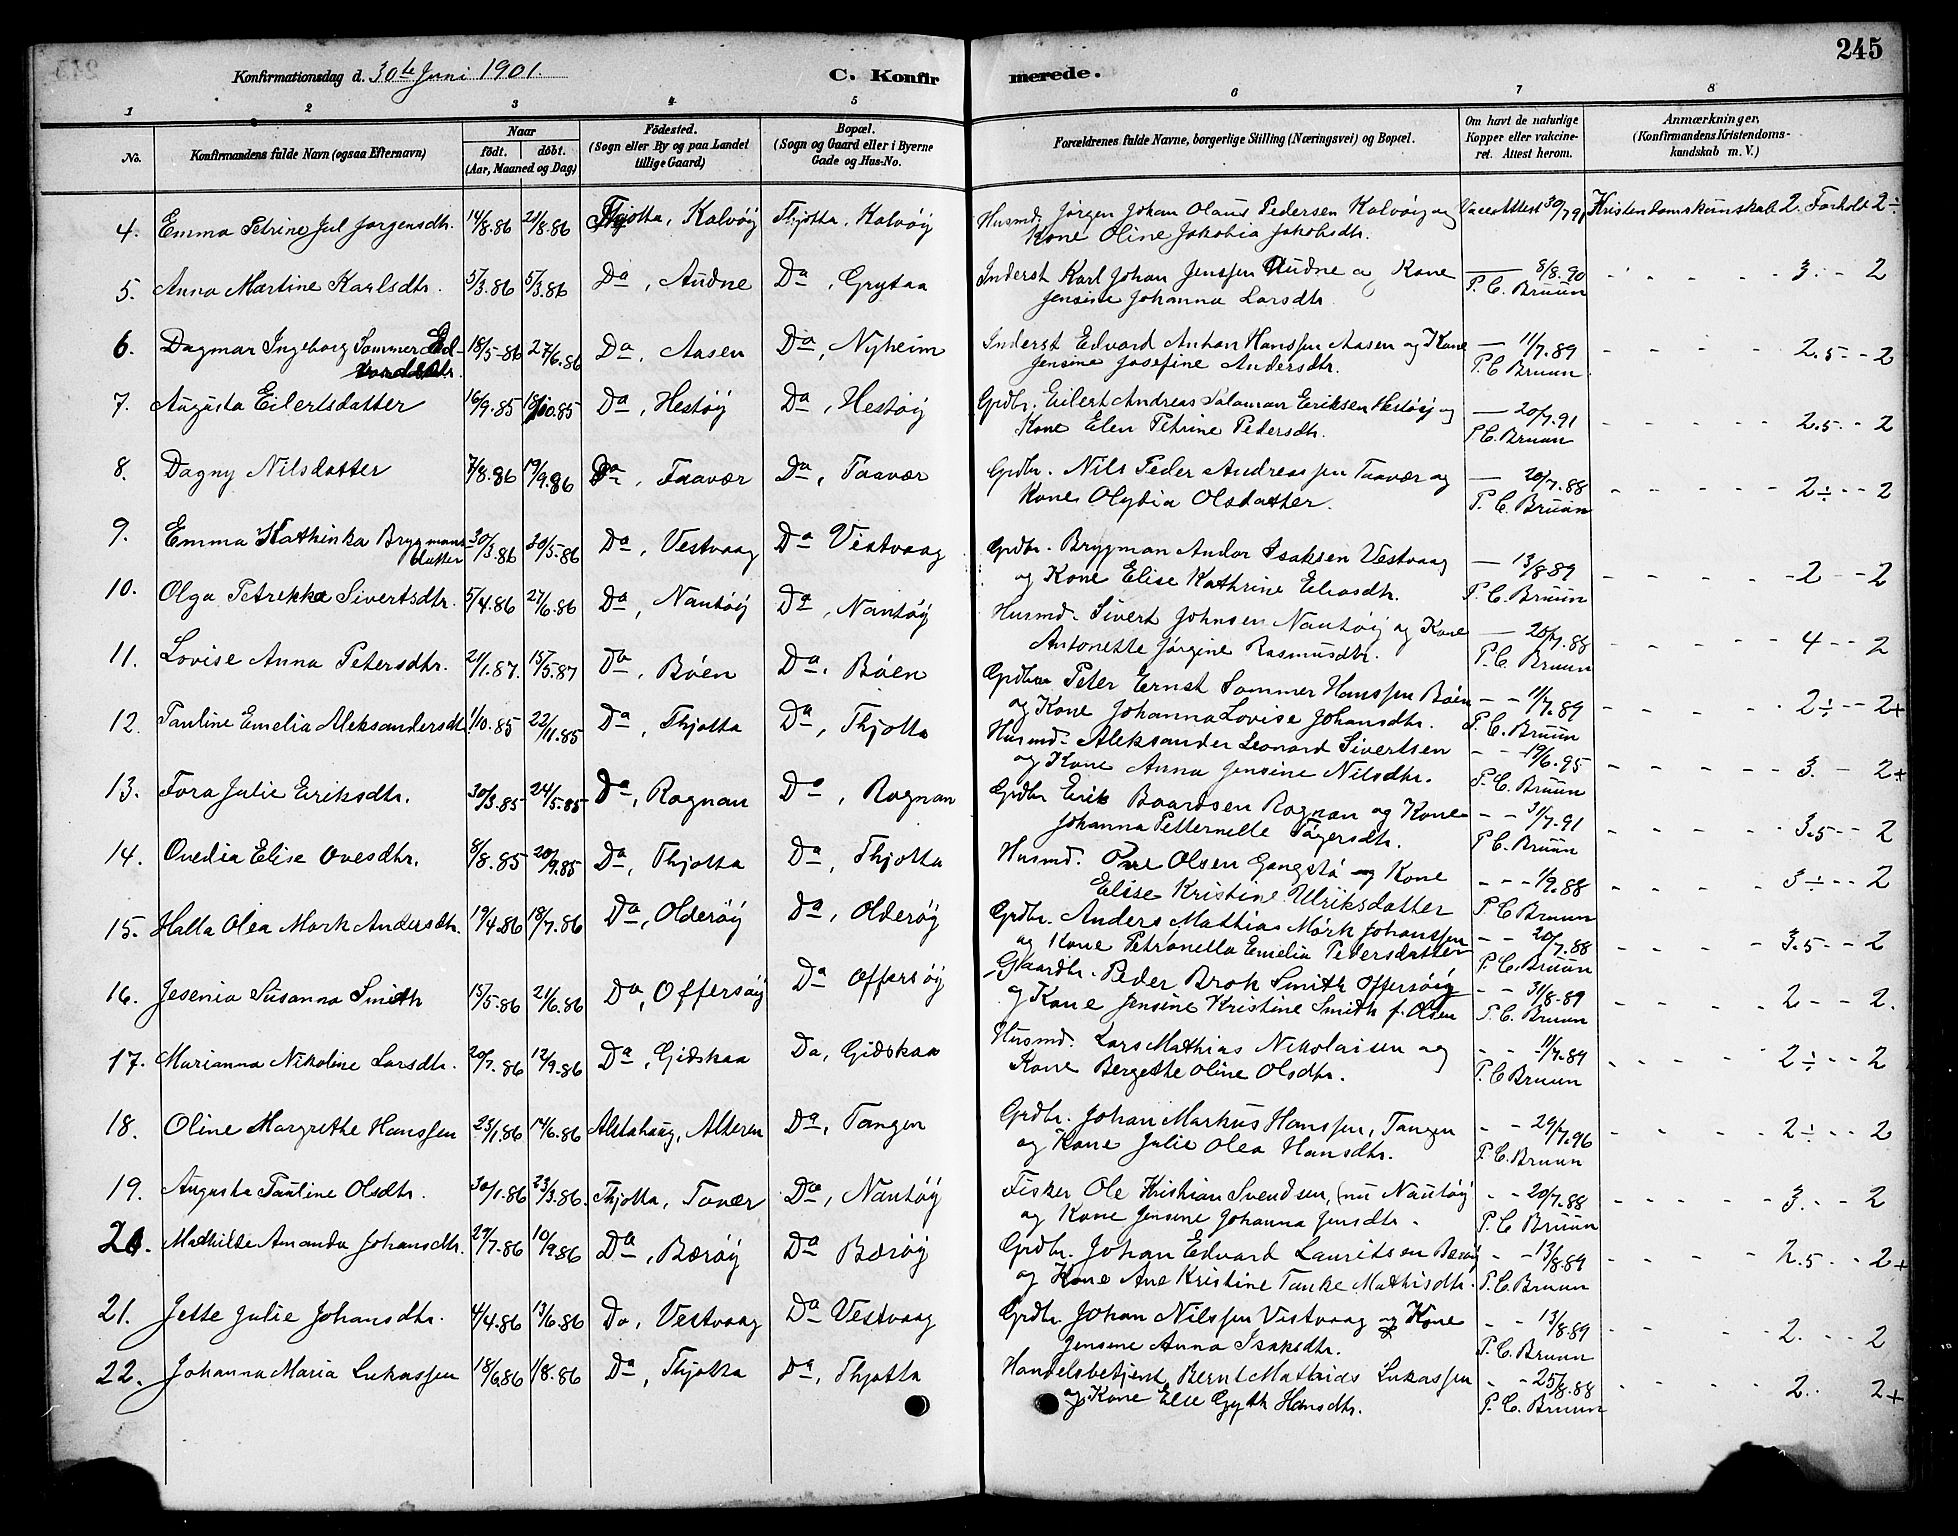 245
Konfirmationsdag d. 30te Juni 1901. C. Konfirmerede.
1 2 3 4 5 6 7 8
No. Konfirmandens fulde Navn (ogsaa Efternavn) Naar født. døbt. (Aar, Maaned og Dag) Fødested. (Sogn eller By og paa Landet tillige Gaard) Bopæl. (Sogn og Gaard eller i Byerne Gade og Hus-No. Forældrenes fulde Navne, borgerlige Stilling (Næringsvei) og Bopæl. Om havt de naturlige Kopper eller vakcineret. Attest herom. Anmærkninger, (Konfirmandens Kristendomskundskab m. V.)
4. Emma Petrine Jul Jørgensdtr. 14/8.86 21/8.86 Thjøtta, Kalvøy Thjøtta, Kalvøy Husmd. Jørgen Johan Olaus Pedersen Kalvøy og Vacc. Attest 30/7 91 Kristendomskunskab 2. Forhold 2÷
Kone Oline Jakobia Jakobsdtr.
5. Anna Martine Karlsdtr. 5/3.86 5/3.86 Da, Audne Da, Grytaa Inderst Karl Johan Jenssen Audne og Kone — 8/8.90 3. - 2
Jensine Johanna Larsdtr. P. C. Bruun
6. Dagmar Ingeborg Sommer Ed- 18/5-86 27/6.86 Da, Aasen Da, Nyheim Inderst Edvard Anton Hanssen Aasen og Kone — 11/7.89 2.5 - - 2
vardsdtr. Jensine Josefine Andersdtr. P. C Bruun
7. Augusta Eilertsdatter 16/9.85 18/10.85 Da, Hestøy Da, Hestøy Grdbr. Eilert Andreas Salamon Eriksen Hestøy og — 20/7.91 2.5 - - 2
Kone Elen Petrine Pedersdtr. P. C. Bruun
8. Dagny Nilsdatter 7/8.86 19/9.86 Da, Taavær Da, Taavær Grdbr. Nils Peder Andreassen Taavær og — 20/7.88 2÷ - - 2
Kone Olydia Olsdatter. P. C. Bruun
9. Emma Kathinka Brygmans- 30/3.86 30/5.86 Da, Vestvaag Da Vestvaag Grdbr. Brygman Andor Isaksen Vestvaag — 13/8 89 2 - - 2
datter og Kone Elise Kathrine Eliasdtr. P. C. Bruun
10. Olga Petrikka Sivertsdtr. 5/4.86 27/6.86 Da, Nautøy Da, Nautøy Husmd. Sivert Johnsen Nautøy og Kone — 20/7.88 4 - - 2
Antonette Jørgine Rasmusdtr. P. C. Bruun
11. Lovise Anna Petersdtr. 21/1.87. 15/5.87 Da, Bøen Da. Bøen Grdbr Peter Ernst Sommer Hanssen Bøen - - 11/7.89 2÷ - - 2+
og Kone Johanna Lovise Johansdtr. P. C. Bruun
12. Pauline Emelia Aleksandersdtr 1/10.85 22/11.85 Da, Thjøtta Da, Thjøtta Husmd. Aleksander Leonard Sivertsen - - 19/6.95 3. - 2+
og Kone Anna Jensine Nilsdtr. P. C. Bruun
13. Tora Julie Eriksdtr. 30/3.85 24/5.85 Da, Rognan Da, Rognan Grdbr Erik Baardsen Rognan og Kone - - 31/7.91 3.5 - - 2
Johanna Petternelle Tagersdtr. P. C. Bruun
14. Ovedia Elise Ovesdtr. 8/8.85 20/9.85 Da, Thjøtta Da, Thjøtta Husmd. Ove Olsen Gangstø og Kone - - - 1/9.88 3÷ - - 2
Elise Kristine Ulriksdatter P. C Bruun
15. Halla Olea Mørk Andersdtr. 19/4.86 18/7.86 Da, Olderøy Da, Olderøy Grdbr. Anders Mathias Mørk Johanssen - - 20/7.88 3.5 - - 2
og Kone Petronella Emelia Pedersdatter P. C. Bruun
16. Jesenia Susanna Smith 15/5.86 21/6.86 Da, Offersøy Da Offersøy Gaardbr. Peder Brok Smith Offersøy - - 31/8.89 2 - - 2.
og Kone Jensine Kristine Smith f. Olsen P. C. Bruun
17. Marianna Nikoline Larsdtr. 20/7.86 12/9.86 Da, Gidskaa Da, Gidskaa Husmd. Lars Mathias Nikolaisen og - - 11/7.89 2÷ - - 2
Kone Bergethe Oline Olsdtr. P. C Bruun
18. Oline Margrethe Hanssen 23/1.86 14/6.86 Alstahaug, Alteren Da, Tangen Grdbr. Johan Markus Hanssen, Tangen - - 29/7.96 2÷ - - 2
og Kone Julie Olea Hansdtr. P. C. Bruun
19. Augusta Pauline Olsdtr. 30/1.86 23/3.86. Thjøtta, Tovær Da, Nautøy Fisker Ole Kristian Svendsen, (nu Nautøy - - 20/7.88 3. - - 2
og Kone Jensine Johanna Jensdtr. P. C. Bruun
20. Mathilde Amanda Johansdtr. 29/7.86 10/9.86 Da, Bærøy Da Bærøy Grdbr. Johan Edvard Lauritsen Bærøy - - 13/8.89 2.5 - - 2+
og Kone Ane Kristine Tanke Mathisdtr. P. C. Bruun
21. Jette Julie Johansdtr. 4/4.86 13/6.86 Da, Vestvaag Da Vestvaag Grdbr. Johan Nilssen Vestvaag og Kone - - 13/8.89 2. 2
Jensine Anna Isaksdtr. P. C. Bruun
22. Johanna Maria Lukassen 18/6.86 1/8.86 Da, Thjøtta Da, Thjøtta Handelsbetjent Bernt Mathias Lukassen - - 25/8.88 2. 2+
og Kone Else Gyth Hansdtr. P. C. Bruun